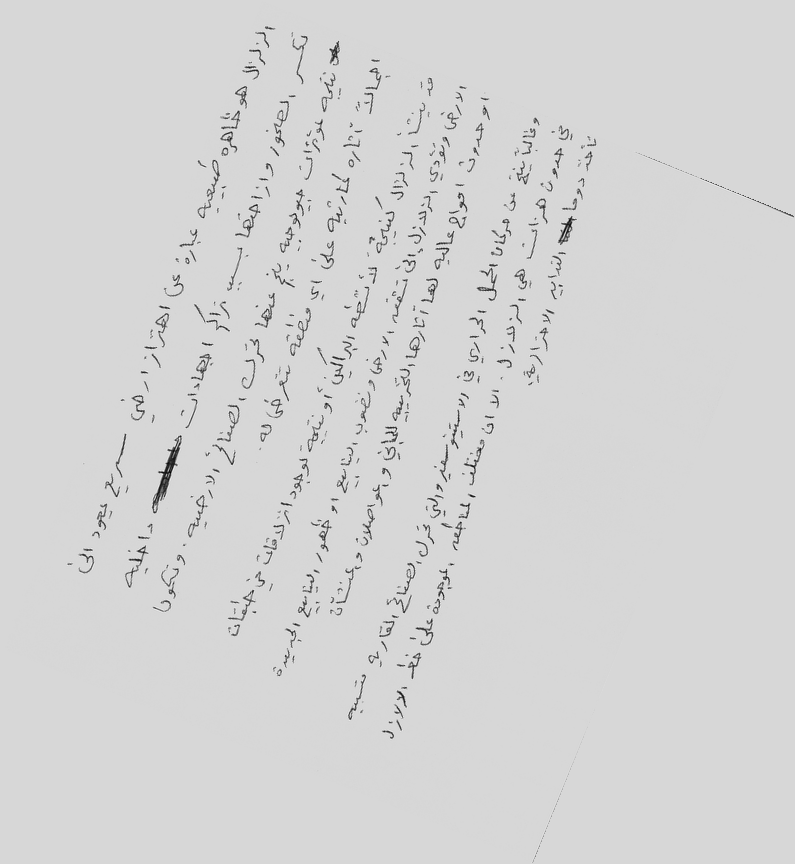 الزلزال هو ظاهرة طبيعية عبارة عن اهتزاز ارضي سريع يعود الى
تكسر الصخور وازاحتها بسبب تراكم اجهادات داخليه
نتيجه لمؤثرات جيولوجيه ينتج عنها تحرك الصفائح الارضيه. وتكون
اجمالاً آثاره كارثيه على اي منطقه تتعرض له.
قد ينشأ الزلزال كنتيجة لأنشطه البراكين أو نتيجه لوجود انزلاقات في طبقات
الارض وتؤدي الزلازل الى تشقق الارض ونضوب الينابيع او ظهور الينابيع الجديدة
او حدوث امواج عاليه لها آثارها التخريبيه للمباني والمواصلات والمنشآت
وغالبا ينتج عن حركات الحمل الحراري في الاستينوسفير والتي تحرك الصفائح القاريه متسببه
في حدوث هزات هي الزلازل. الا ان مختلف المناطق الموجودة على خط الزلازل
تأخذ دوما التدابير الاحترازية